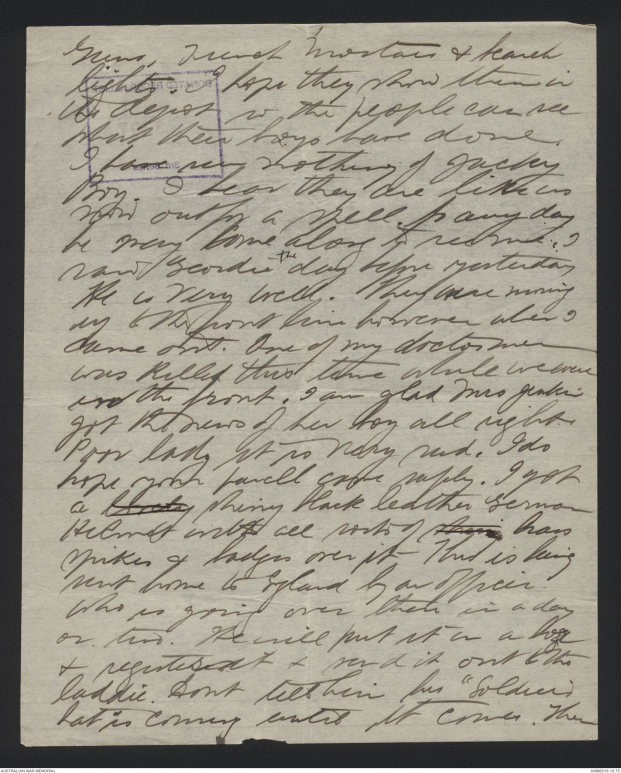 Guns, Trench Mortars & search
lights. I hope they show them in
the depot so the people can see
what their boys have done.
I have seen nothing of Jacky
Boy. I hear they are like us
now out for a spell. So any day
he may come along to see me. I
saw Geordie the day before yesterday
He is very well. They were moving
up to the front line however when I
came out. One of my doctors men
was killed this time while we were
in the front. I am glad Mrs
got the news of her boy all right.
Poor lady it is very sad. I do
hope your parcell came safely. I got
a shiny black leather German
Helmet with all sorts of brass
spikes & badges over it. This is being
sent home to England by an officer
who is going over there in a day
or two. He will put it in a box
& register it & send it out to the
laddie. Dont tell him his "Soldiers
hat is coming until it comes. Then
AUSTRALIAN WAR MEMORIAL